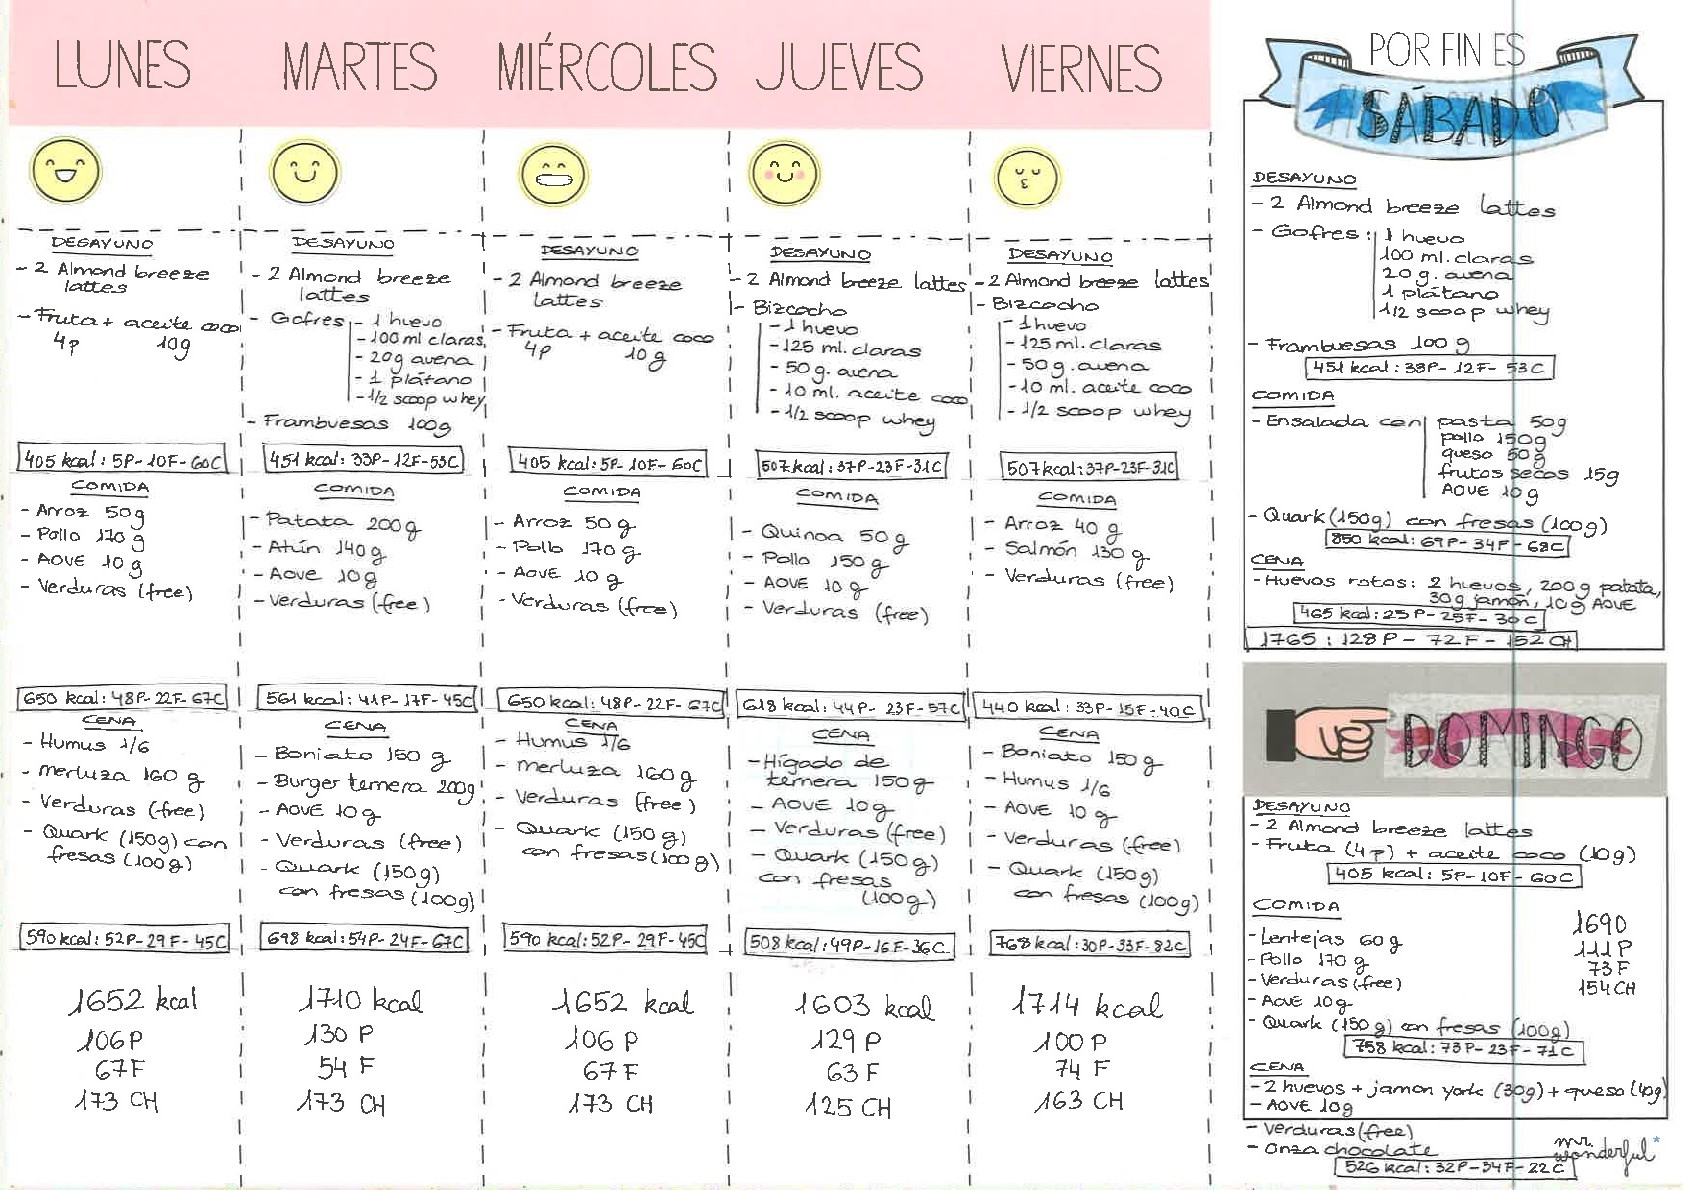 LUNES
DESAYUNO
- 2 Almond breeze
lattes
- Fruta + aceite coco
4p 10g
405 kcal: 5P-10F-60C
COMIDA
- Arroz 50g
- Pollo 170g
- AOVE 10g
- Verduras (free)
650 kcal: 48P-22F-67C
CENA
- Humus 1/6
- merluza 160 g
- Verduras (free)
- Quark (150g) con
fresas (100g)
590 kcal: 52P-29F-45C
1652 kcal
106P
67F
173 CH
MARTES
DESAYUNO
- 2 Almond breeze
lattes
- Gofres - 1 huevo
- 100 ml claras
- 20g avena
- 1 plátano
- 1/2 scoop whey
- Frambuesas 100g
451 kcal: 33P-12F-53C
COMIDA
- Patata 200g
- Atún 140g
- Aove 10g
- Verduras (free)
561 kcal: 41P-17F-45C
CENA
- Boniato 150 g
- Burger ternera 200g
- AOVE 10g
- Verduras (free)
- Quark (150g)
con fresas (100g)
698 kcal: 54P-24F-67C
1710 kcal
130 P
54 F
173 CH
MIÉRCOLES
DESAYUNO
- 2 Almond breeze
lattes
- Fruta + aceite coco
4p 10g
405 kcal: 5P-10F-60C
COMIDA
- Arroz 50 g
- Pollo 170g
- AOVE 10 g
- Verduras (free)
650 kcal: 48P-22F-67C
CENA
- Humus 1/6
- merluza 160g
- Verduras (free)
- Quark (150 g)
con fresas (100g)
590 kcal: 52P-29F-45C
1652 kcal
106 P
67 F
173 CH
JUEVES
DESAYUNO
- 2 Almond breeze lattes
- Bizcocho
- 1 huevo
- 125 ml. claras
- 50 g. avena
- 10 ml. aceite coco
- 1/2 scoop whey
507 kcal: 37P-23F-31C
COMIDA
- Quinoa 50 g
- Pollo 150g
- AOVE 10 g
- Verduras (free)
618 kcal: 44P-23F-57C
CENA
- Hígado de
ternera 150g
- AOVE 10g
- Verduras (free)
- Quark (150g)
con fresas
(100g)
508 kcal: 49P-16F-36C
1603 kcal
129 P
63 F
125 CH
VIERNES
DESAYUNO
- 2 Almond breeze lattes
- Bizcocho
- 1 huevo
- 125 ml. claras
- 50 g. avena
- 10 ml. aceite coco
- 1/2 scoop whey
507 kcal: 37P-23F-31C
COMIDA
- Arroz 40 g
- Salmón 130 g
- Verduras (free)
440 kcal: 33P-15F-40C
CENA
- Boniato 150g
- Humus 1/6
- AOVE 10 g
- Verduras (free)
- Quark (150g)
con fresas (100g)
768 kcal: 30P-33F-82C
1714 kcal
100 P
74 F
163 CH
POR FIN ES
SÁBADO
DESAYUNO
- 2 Almond breeze lattes
- Gofres: 1 huevo
100 ml. claras
20 g. avena
1 plátano
1/2 scoop whey
- Frambuesas 100 g
451 kcal: 33P-12F-53C
COMIDA
- Ensalada con pasta 50g
pollo 150g
queso 50g
frutos secos 15g
AOVE 10g
- Quark (150g) con fresas (100g)
850 kcal: 69P-34F-68C
CENA
- Huevos rotos: 2 huevos, 200g patata,
30g jamón, 10g AOVE
465 kcal: 25P-25F-30C
1765: 128 P - 72 F - 152 CH
DOMINGO
DESAYUNO
- 2 Almond breeze lattes
- Fruta (4p) + aceite coco (10g)
405 kcal: 5P-10F-60C
COMIDA
- Lentejas 60g
- Pollo 170 g
- Verduras (free)
- AOVE 10g
- Quark (150 g) con fresas (100g)
758 kcal: 73P-23F-71C
1690
111 P
73 F
154 CH
CENA
- 2 huevos + jamon york (30g) + queso (40g)
- AOVE 10g
- Verduras (free)
- Onza chocolate
526 kcal: 32P-34F-22C
mr.
wonderful*